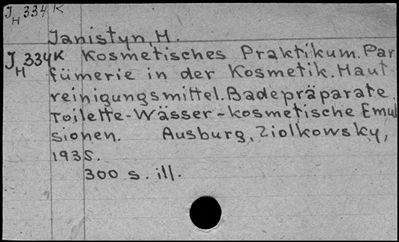 J H 334 K
Janistyn, H.
J H 334K Kosmetisches Praktikum. Par
fümerie in der Kosmetik. Haut
reinigungsmittel. Badepräparate.
Toilette-Wässer-kosmetische Emul
sionen. Ausburg, Ziolkowsky,
1935.
300 s. ill.